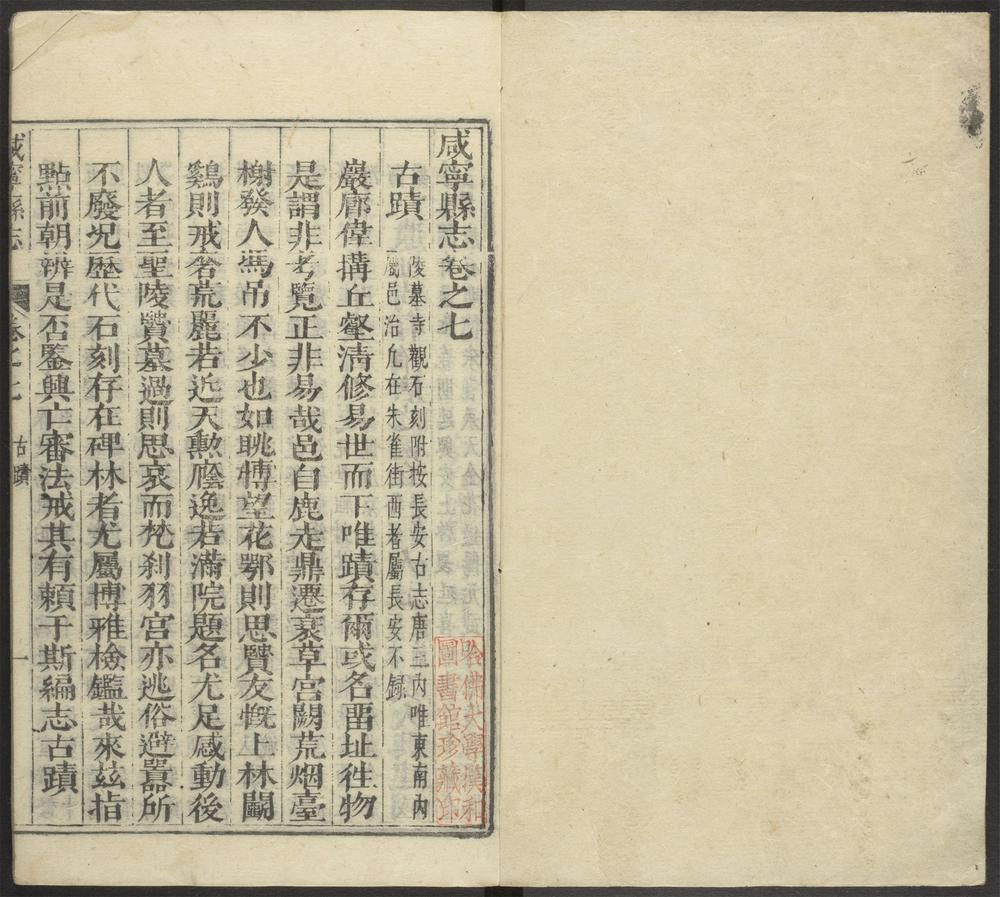 咸寧縣志卷之七
古蹟
陵墓寺觀石刻附按長安古志唐三内唯東南内
屬邑治允在朱雀街西者屬長安不録
巖廊偉搆丘壑清修易世而下唯蹟存爾或名畱址徃物
是謂非考覽正非易哉邑自鹿走鼎遷衰草宮闕荒烟臺
榭發人馮吊不少也如眺博望花鄂則思賢友慨上林鬬
鷄則戒奢荒麗若近天勲廕逸若滿院題名尤足感動後
人者至聖陵賢墓過則思哀而梵刹羽宮亦逃俗避囂所
不廢况歴代石刻存在碑林者尤屬博雅檢鑑哉來玆指
點前朝辨是否鑒興亡審法戒其有賴于斯編志古蹟
咸寧縣志
卷之七
古蹟
一
哈佛大學漢和
圖書館珍藏印